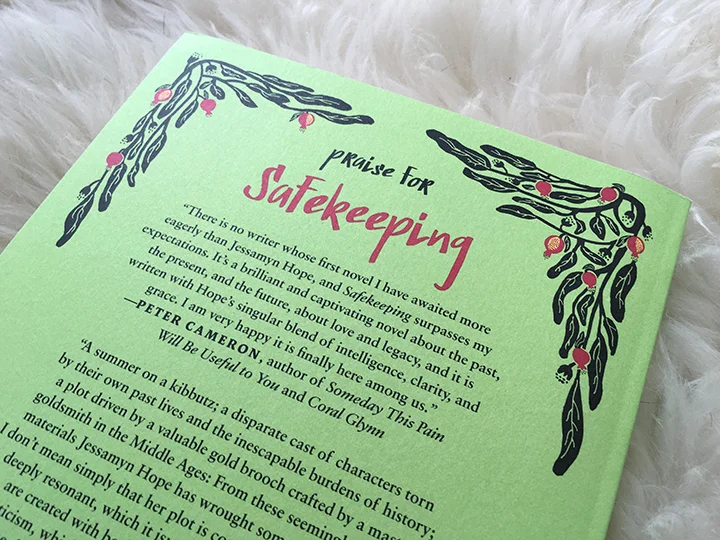 PRAISE FOR
Safekeeping
“There is no writer whose first novel I have awaited more
eagerly than Jessamyn Hope, and Safekeeping surpasses my
expectations. It’s a brilliant and captivating novel about the past,
the present, and the future, about love and legacy, and it is
written with Hope’s singular blend of intelligence, clarity, and
grace. I am very happy it is finally here among us.”
—PETER CAMERON, author of Someday This Pain
Will Be Useful to You and Coral Glynn
“A summer on a kibbutz; a disparate cast of characters torn
by their own past lives and the inescapable burdens of history;
a plot driven by a valuable gold brooch crafted by a
goldsmith in the Middle Ages: From these
materials Jessamyn Hope has wrought
I don’t mean simply that her plot is
deeply resonant, which it
are created with